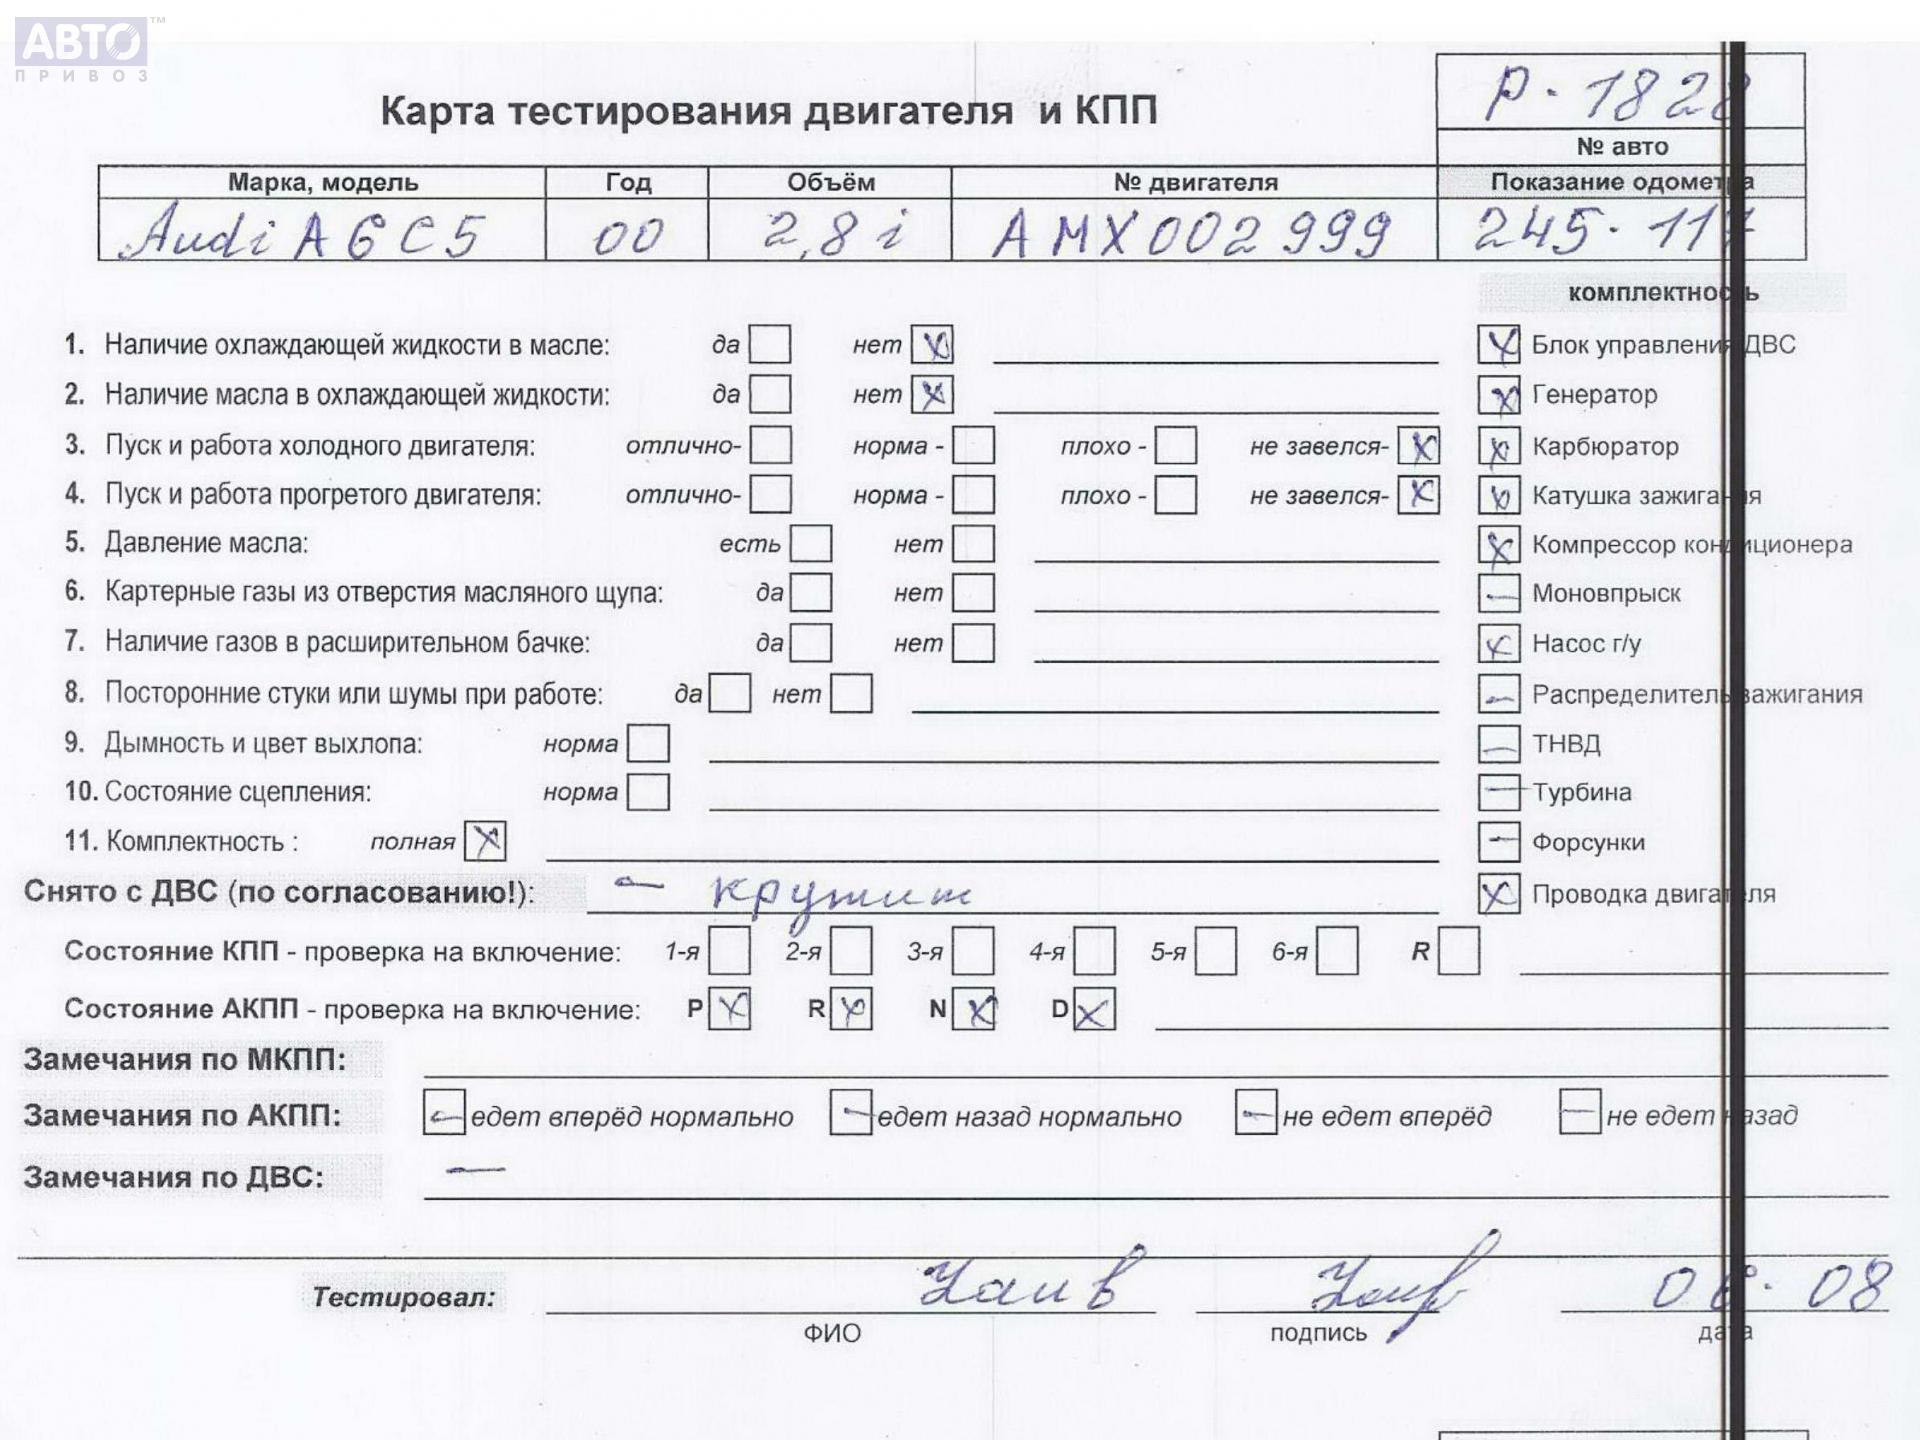 АВТО™
ПРИВОЗ
Р-1828
Карта тестирования двигателя и КПП
№ авто
Марка, модель Год Объём № двигателя Показание одометра
Audi A6C5 00 2,8 i AMX002999 245.117
комплектность
1. Наличие охлаждающей жидкости в масле: да нет X Блок управления ДВС
2. Наличие масла в охлаждающей жидкости: да нет X Генератор
3. Пуск и работа холодного двигателя: отлично- норма - плохо - не завелся- X Карбюратор
4. Пуск и работа прогретого двигателя: отлично- норма - плохо - не завелся- X Катушка зажигания
5. Давление масла: есть нет Компрессор кондиционера
6. Картерные газы из отверстия масляного щупа: да нет Моновпрыск
7. Наличие газов в расширительном бачке: да нет Насос г/у
8. Посторонние стуки или шумы при работе: да нет Распределитель зажигания
9. Дымность и цвет выхлопа: норма ТНВД
10. Состояние сцепления: норма Турбина
11. Комплектность : полная X Форсунки
Снято с ДВС (по согласованию!): - кружит Проводка двигателя
Состояние КПП - проверка на включение: 1-я 2-я 3-я 4-я 5-я 6-я R
Состояние АКПП - проверка на включение: P X R X N X D X
Замечания по МКПП:
Замечания по АКПП: едет вперёд нормально едет назад нормально не едет вперёд не едет назад
Замечания по ДВС: —
Тестировал: 08
ФИО подпись дата